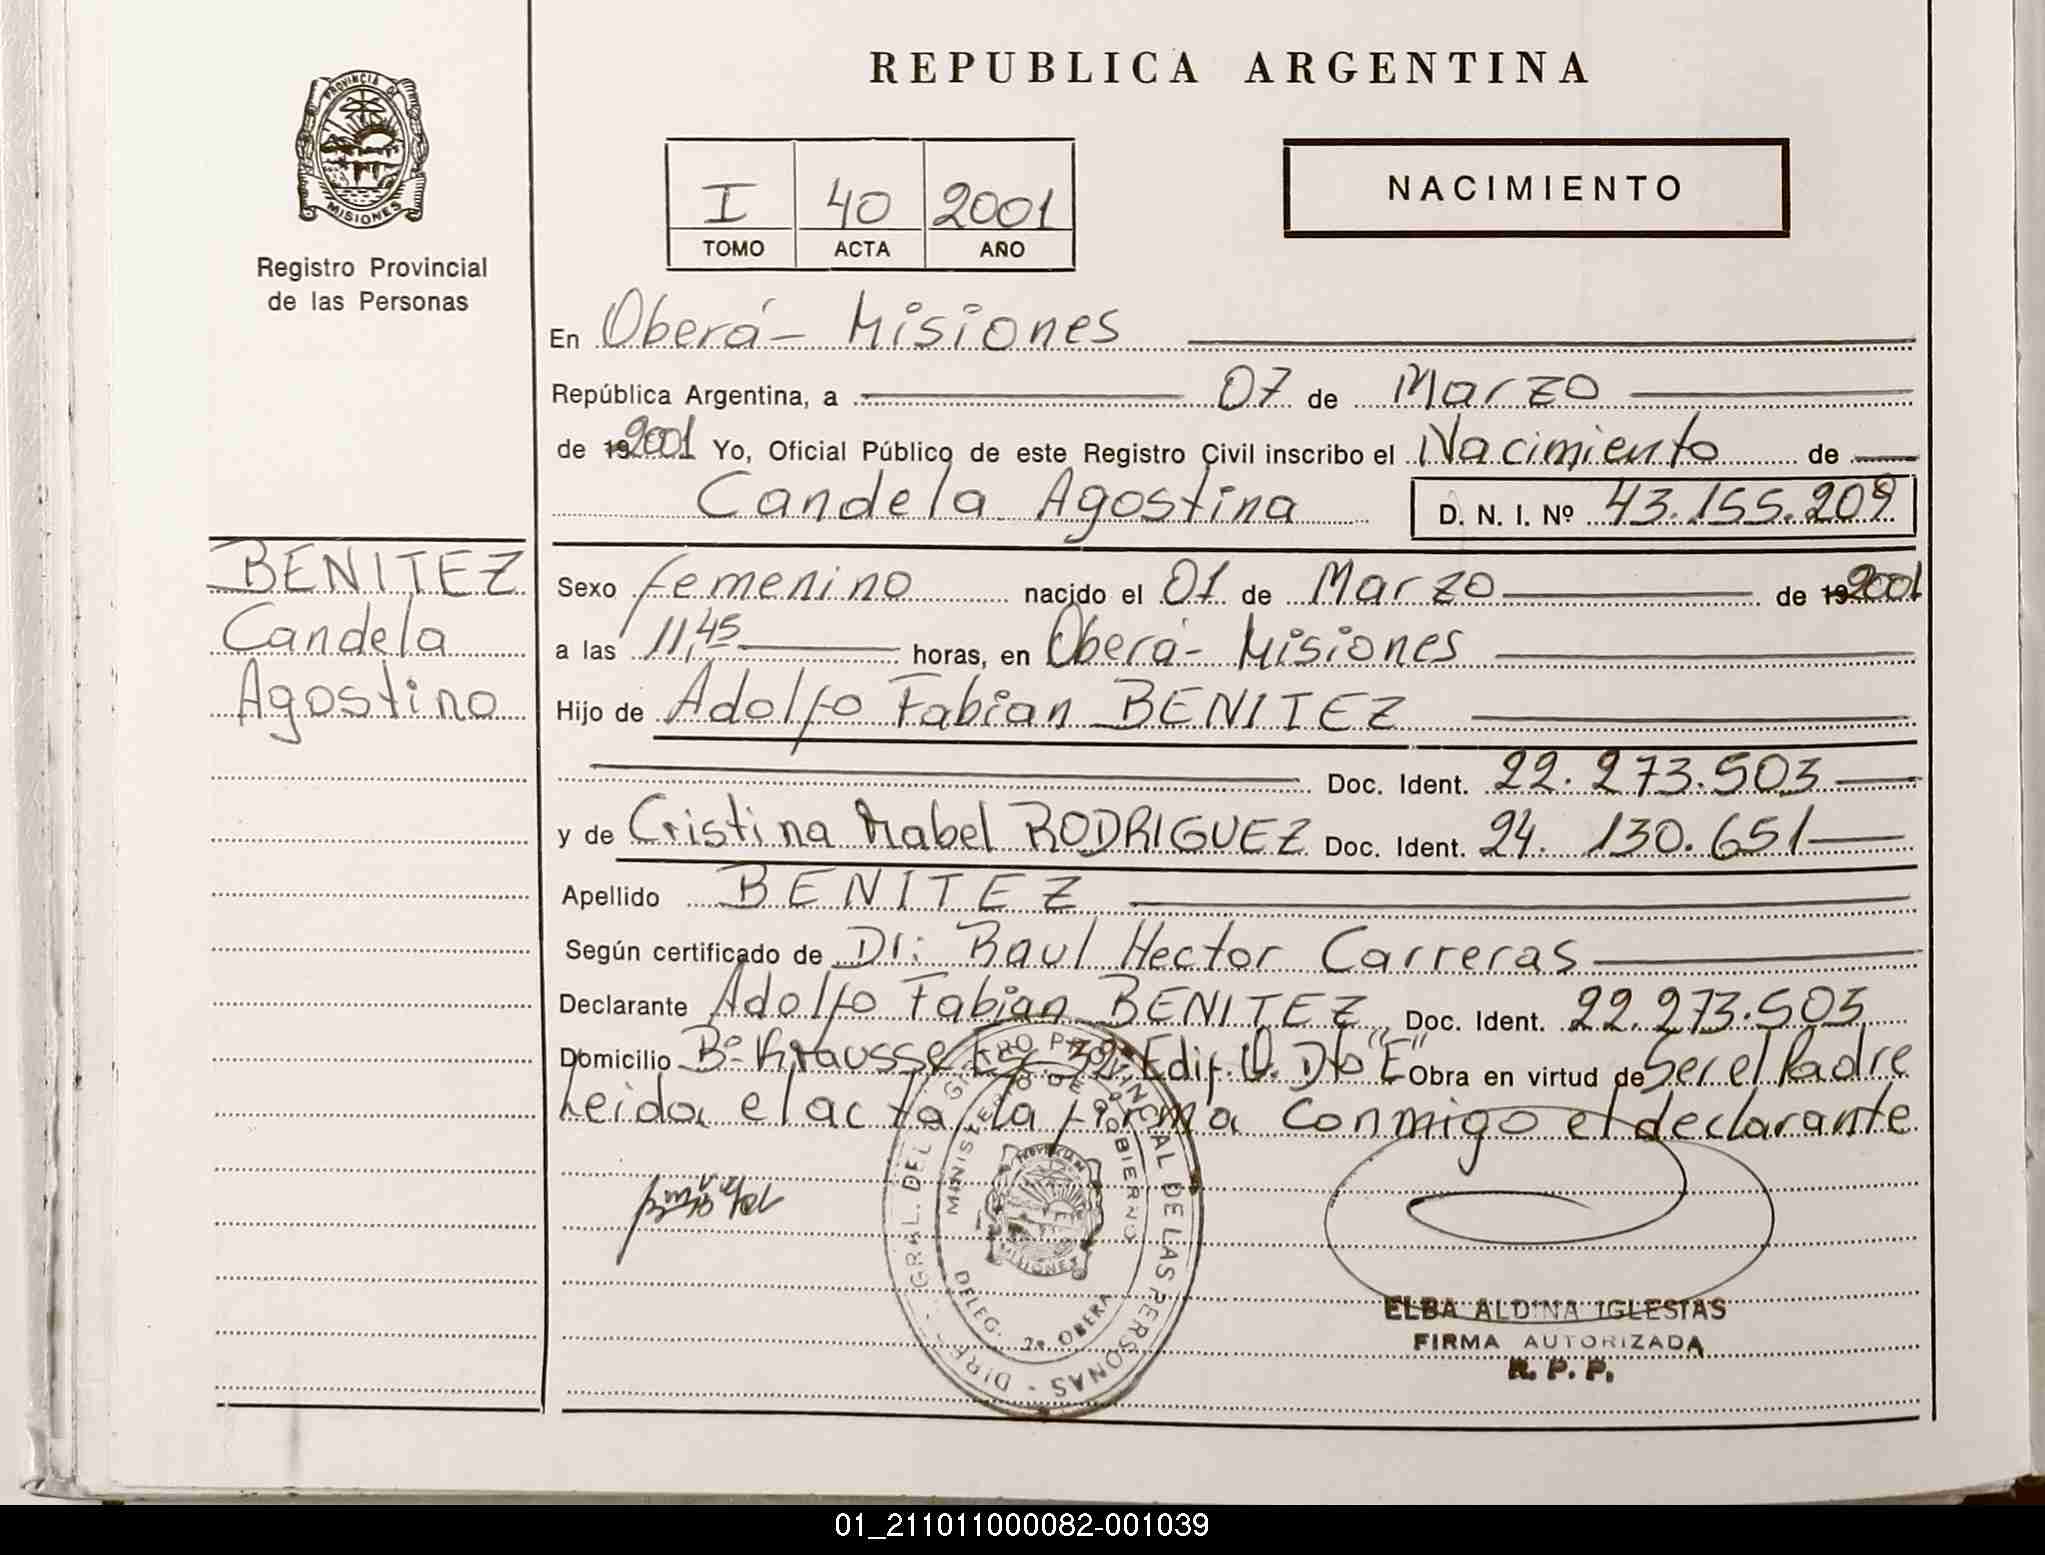 REPUBLICA ARGENTINA
PROVINCIA DE
MISIONES
Registro Provincial
de las Personas
I 40 2001
TOMO ACTA AÑO
NACIMIENTO
En Oberá - Misiones
República Argentina, a 07 de Marzo
de 192001 Yo, Oficial Público de este Registro Civil inscribo el Nacimiento de
Candela Agostina D. N. I. Nº 43.155.209
BENITEZ
Candela
Agostina
Sexo femenino nacido el 01 de Marzo de 192001
a las 11,45 horas, en Oberá - Misiones
Hijo de Adolfo Fabian BENITEZ
Doc. Ident. 22.273.503
y de Cristina Mabel RODRIGUEZ Doc. Ident. 24.130.651
Apellido BENITEZ
Según certificado de Dr: Raul Hector Carreras
Declarante Adolfo Fabian BENITEZ Doc. Ident. 22.273.503
Domicilio Bº Krausse Esc. 32 Edif. D. Dto "E" Obra en virtud de Ser el Padre
Leida el acta la firma conmigo el declarante
DIREC. GRAL. DEL REGISTRO PROVINCIAL DE LAS PERSONAS
MINISTERIO DE GOBIERNO
PROVINCIA DE
MISIONES
DELEG. 2ª OBERA
ELBA ALDINA IGLESIAS
FIRMA AUTORIZADA
R. P. P.
01_211011000082-001039